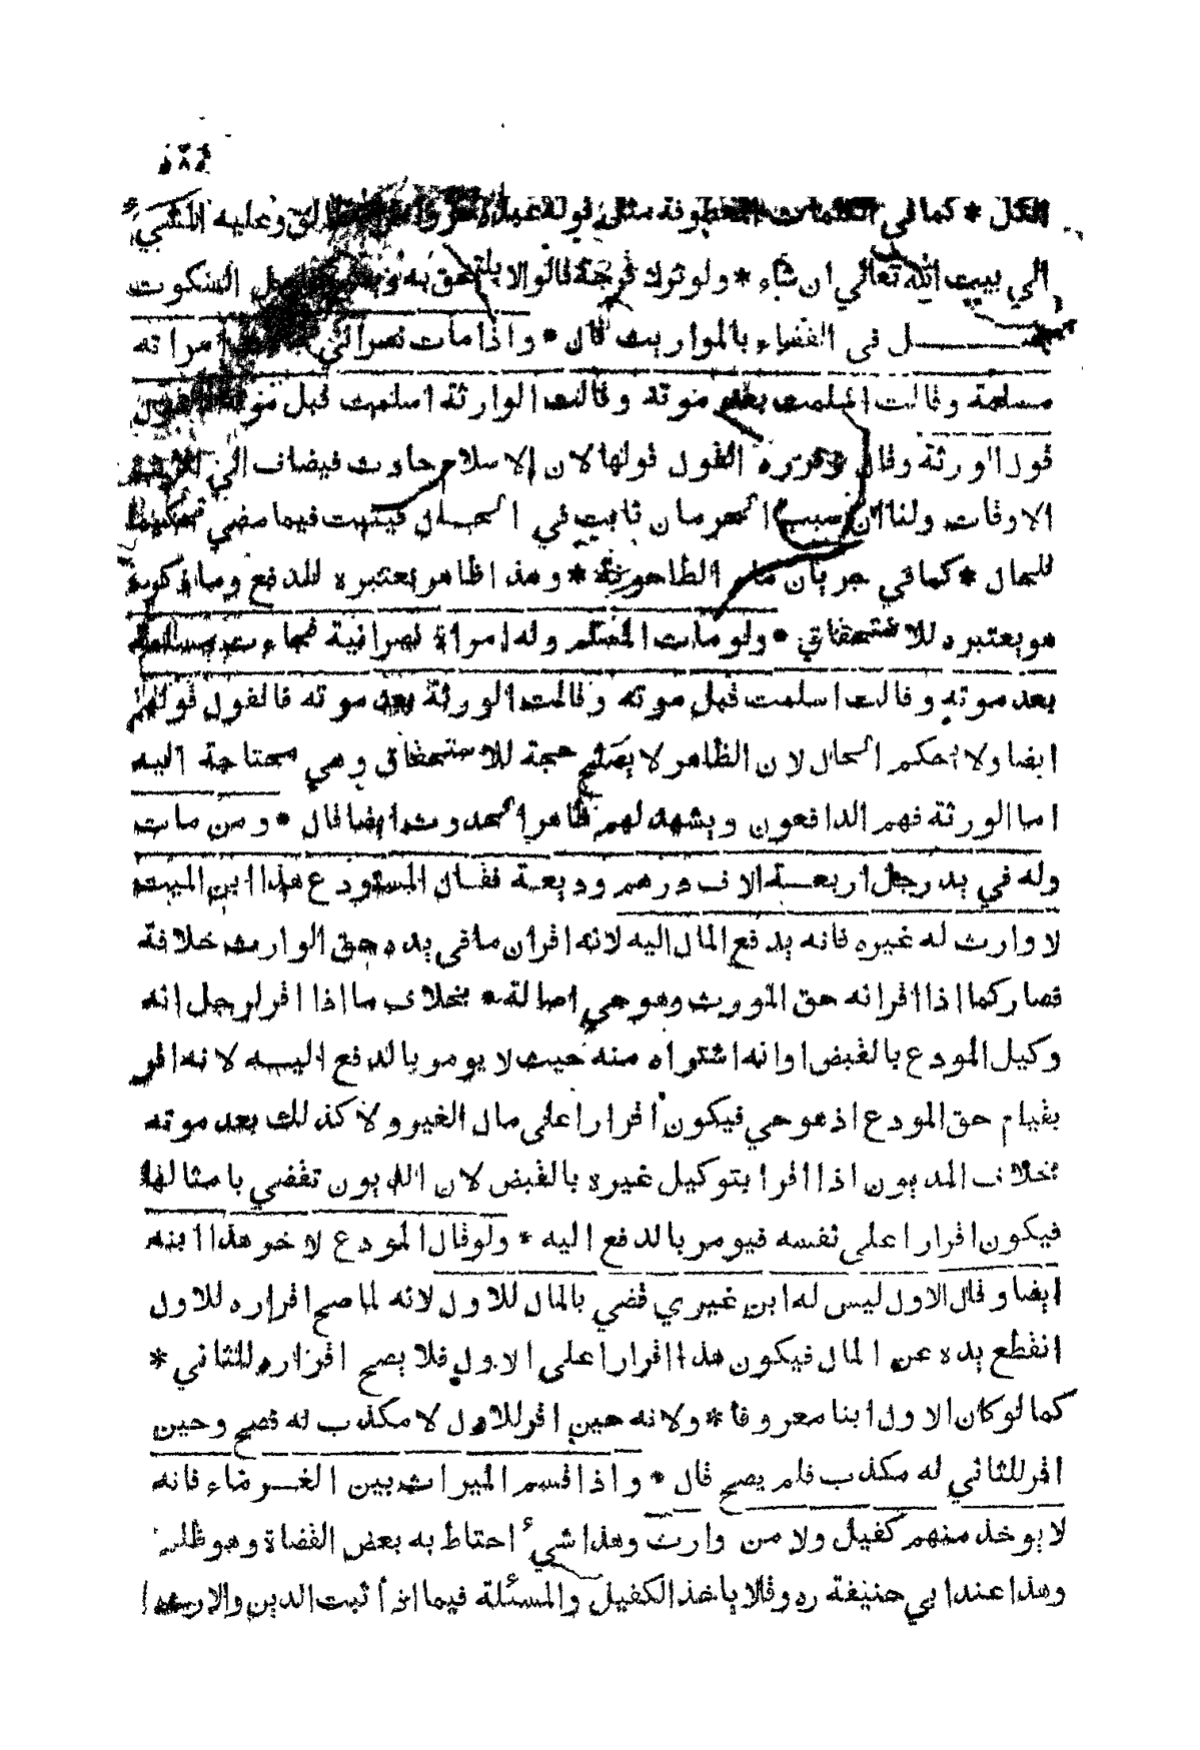 الكل * كما في الكلمات المعطوفة مثل قوله عبده حر وامرأته طالق وعليه المشي
الي بيت الله تعالي ان شاء * ولو ترك فرجة قالوا لا يلتحق به السكوت
فصل في القضاء بالمواريث قال * واذا مات نصراني امراته
مسلمة وقالت اسلمت بعد موته وقالت الورثة اسلمت قبل موته فالقول
قول الورثة وقال زفر ره القول قولها لان الاسلام حادث فيضاف الي اقرب
الاوقات ولنا ان سبب الحرمان ثابت في الحال فيثبت فيما مضي تحكيما
للحال * كما في جريان ماء الطاحونة * وهذا ظاهر يعتبره للدفع وما ذكره
هو يعتبره للاستحقاق * ولو مات المسلم وله امراة نصرانية فجاءت مسلمة
بعد موته وقالت اسلمت قبل موته وقالت الورثة بعد موته فالقول قولهم
ايضا ولا يحكم الحال لان الظاهر لا يصلح حجة للاستحقاق وهي محتاجة اليه
اما الورثة فهم الدافعون ويشهد لهم ظاهر الحدوث ايضا قال * ومن مات
وله في يد رجل اربعة الاف درهم وديعة فقال المستودع هذا ابن الميت
لا وارث له غيره فانه يدفع المال اليه لانه اقران ما في يده حق الوارث خلافة
فصار كما اذا اقرانه حق المورث وهو حي اصالة * بخلاف ما اذا اقر لرجل انه
وكيل المودع بالقبض اوانه اشتراه منه حيث لا يومر بالدفع اليه لانه اقر
بقيام حق المودع اذ هو حي فيكون اقرارا على مال الغير ولا كذلك بعد موته
بخلاف المديون اذا اقرا بتوكيل غيره بالقبض لان الديون تقضي بامثالها
فيكون اقرارا على نفسه فيومر بالدفع اليه * ولو قال المودع لاخر هذا ابنه
ايضا وقال الاول ليس له ابن غيري قضي بالمال للاول لانه لما صح اقراره للاول
انقطع يده عن المال فيكون هذا اقرارا على الاول فلا يصح اقراره للثاني *
كما لو كان الاول ابنا معروفا * ولانه حين اقر للاول لا مكذب له فصح وحين
اقر للثاني له مكذب فلم يصح قال * واذا قسم الميراث بين الغرماء فانه
لا يوخذ منهم كفيل ولا من وارث وهذا شيء احتاط به بعض القضاة وهو ظلم
وهذا عند ابي حنيفة ره وقالا ياخذ الكفيل والمسئلة فيما اذا ثبت الدين والارث